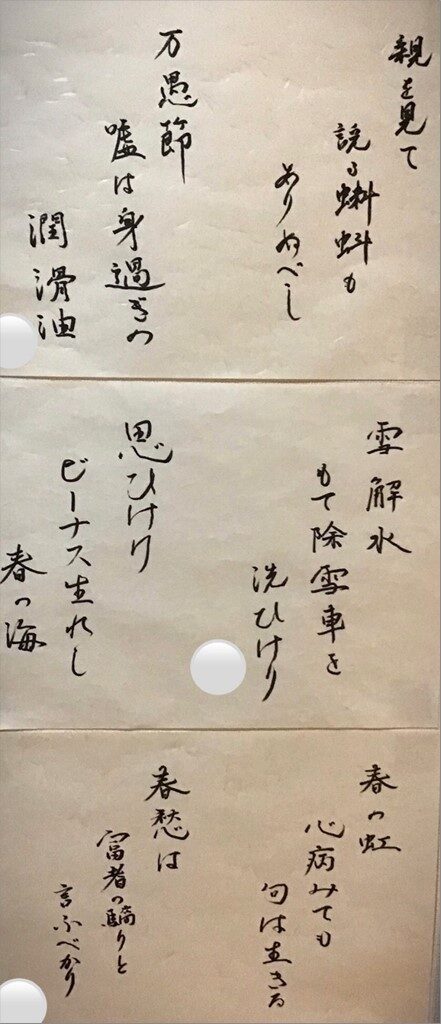 親を見て
訝る蝌蚪も
ありぬべし
万愚節
嘘は身過ぎの
潤滑油
雪解水
もて除雪車を
洗ひけり
思ひけり
ビーナス生れし
春の海
春の虹
心病みても
句は生きる
春愁は
富者の驕りと
言ふべかり